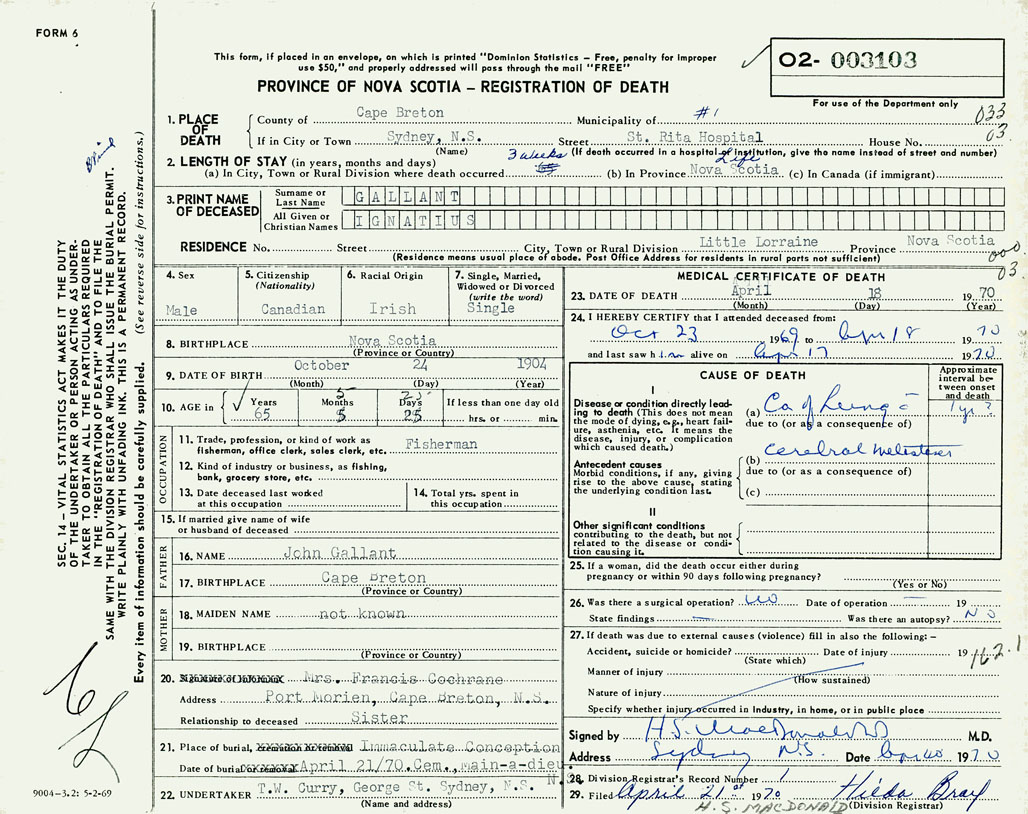 FORM 6
This form, if placed in an envelope, on which is printed "Dominion Statistics - Free, penalty for improper
use $50," and properly addressed will pass through the mail "FREE"
O2- 003103
For use of the Department only
PROVINCE OF NOVA SCOTIA – REGISTRATION OF DEATH
033
03
1. PLACE OF DEATH
County of Cape Breton Municipality of #1
If in City or Town Sydney, N.S. Street St. Rita Hospital House No.
(Name) (If death occurred in a hospital or institution, give the name instead of street and number)
2. LENGTH OF STAY (in years, months and days)
(a) In City, Town or Rural Division where death occurred 3 weeks (b) In Province Life Nova Scotia (c) In Canada (if immigrant)
3. PRINT NAME OF DECEASED
Surname or Last Name GALLANT
All Given or Christian Names IGNATIUS
RESIDENCE No. Street City, Town or Rural Division Little Lorraine Province Nova Scotia
(Residence means usual place of abode. Post Office Address for residents in rural parts not sufficient)
000
03
4. Sex Male
5. Citizenship (Nationality) Canadian
6. Racial Origin Irish
7. Single, Married, Widowed or Divorced (write the word) Single
8. BIRTHPLACE Nova Scotia
(Province or Country)
9. DATE OF BIRTH October 24 1904
(Month) (Day) (Year)
10. AGE in Years 65 Months 5 5 Days 25 25 If less than one day old
hrs. or min.
OCCUPATION
11. Trade, profession, or kind of work as
fisherman, office clerk, sales clerk, etc. Fisherman
12. Kind of industry or business, as fishing,
bank, grocery store, etc.
13. Date deceased last worked
at this occupation
14. Total yrs. spent in
this occupation
15. If married give name of wife
or husband of deceased
FATHER
16. NAME John Gallant
17. BIRTHPLACE Cape Breton
(Province or Country)
MOTHER
18. MAIDEN NAME not known
19. BIRTHPLACE
(Province or Country)
20. Signature of Informant Mrs. Francis Cochrane
Address Port Morien, Cape Breton, N.S.
Relationship to deceased Sister
21. Place of burial, cremation or removal Immaculate Conception
Date of burial or removal April 21/70. Cem., main-a-dieu
N.S.
22. UNDERTAKER T.W. Curry, George St. Sydney, N.S.
(Name and address)
MEDICAL CERTIFICATE OF DEATH
23. DATE OF DEATH April 18 1970
(Month) (Day) (Year)
24. I HEREBY CERTIFY that I attended deceased from:
Oct 23 1969 to Apr 18 1970
and last saw him alive on Apr 17 1970
CAUSE OF DEATH
Approximate interval between onset and death
I
Disease or condition directly leading to death (This does not
mean the mode of dying, e.g., heart failure, asthenia, etc. It means the
disease, injury, or complication
which caused death.)
(a) Ca of Lung 1 yr ?
due to (or as a consequence of)
(b) Cerebral metastases
Antecedent causes
Morbid conditions, if any, giving
rise to the above cause, stating
the underlying condition last.
due to (or as a consequence of)
(c)
II
Other significant conditions
contributing to the death, but not
related to the disease or condition causing it.
25. If a woman, did the death occur either during
pregnancy or within 90 days following pregnancy?
(Yes or No)
26. Was there a surgical operation? No Date of operation 19
State findings Was there an autopsy? No
27. If death was due to external causes (violence) fill in also the following: –
Accident, suicide or homicide? Date of injury 19
(State which)
162.1
Manner of injury
(How sustained)
Nature of injury
Specify whether injury occurred in Industry, in home, or in public place
Signed by H.S. MacDonald M.D.
Address Sydney N.S. Date 1970
28. Division Registrar's Record Number 1
29. Filed April 21st 1970 Hilda Bray
H.S. MACDONALD (Division Registrar)
SEC. 14 – VITAL STATISTICS ACT MAKES IT THE DUTY
OF THE UNDERTAKER OR PERSON ACTING AS UNDERTAKER
TO OBTAIN ALL THE PARTICULARS REQUIRED
IN THE "REGISTRATION OF DEATH" AND TO FILE THE
SAME WITH THE DIVISION REGISTRAR WHO SHALL ISSUE THE BURIAL PERMIT.
WRITE PLAINLY WITH UNFADING INK. THIS IS A PERMANENT RECORD.
Every item of information should be carefully supplied. (See reverse side for instructions.)
9004–3.2: 5-2-69